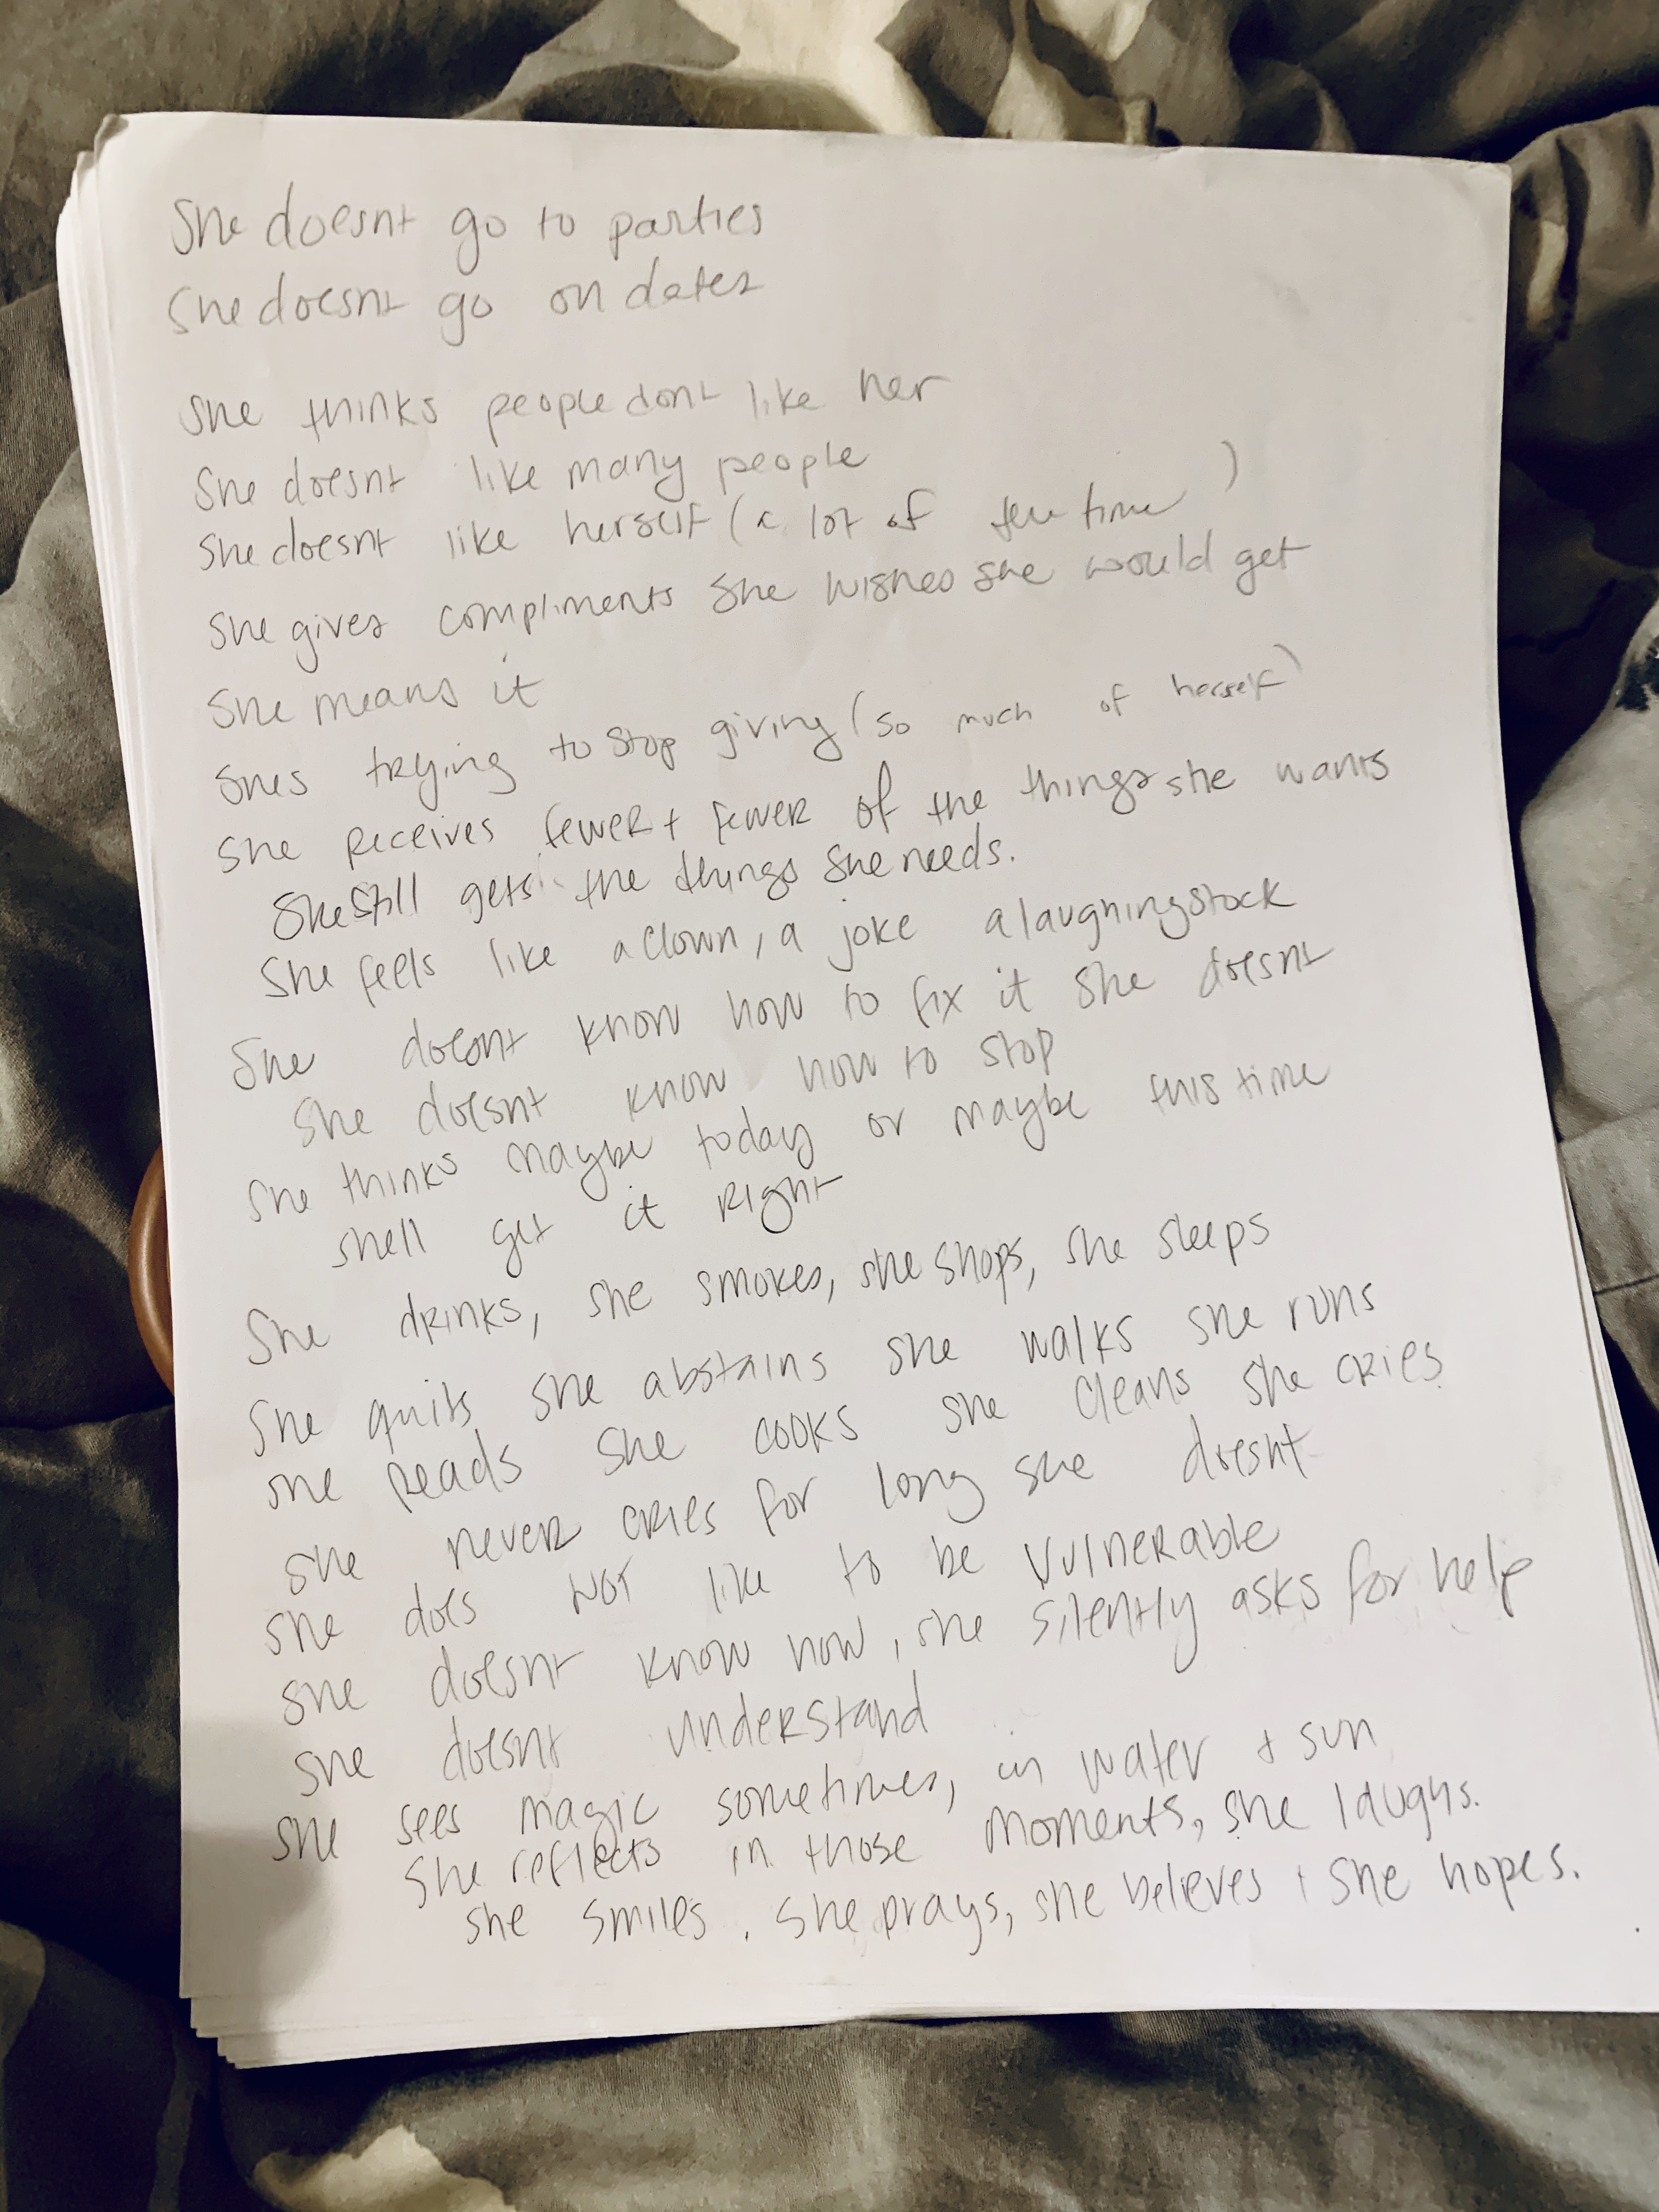 She doesnt go to parties
She doesnt go on dates
She thinks people dont like her
She doesnt like many people
She doesnt like herself (a lot of the time)
She gives compliments she wishes she would get
She means it
Shes trying to stop giving (so much of herself)
She receives fewer + fewer of the things she wants
She still gets the things she needs.
She feels like a clown, a joke a laughingstock
She doesnt know how to fix it she doesnt
She doesnt know how to stop
She thinks maybe today or maybe this time
shell get it right
She drinks, she smokes, she shops, she sleeps
She quits she abstains she walks she runs
she reads she cooks she cleans she cries
she never cries for long she doesnt
she does not like to be vulnerable
she doesnt know how, she silently asks for help
she doesnt understand
she sees magic sometimes, in water + sun
She reflects in those moments, she laughs.
she smiles. She prays, she believes + she hopes.